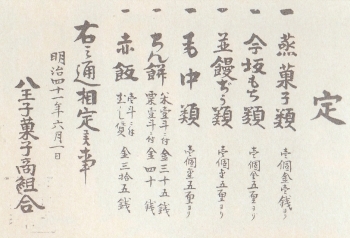 定
一 蒸菓子類 壱個金壱銭ゟ
一 今坂もち類 壱個金五厘ゟ
一 並饅ぢう類 壱個金五厘ゟ
一 毛中類 壱個金五厘ゟ
一 ちん餅 米壱斗ニ付金三十五銭
粟壱斗ニ付金四十銭
一 赤飯 壱斗ニ付
むし賃 金三拾五銭
右之通相定候事
明治四十一年六月一日
八王子菓子商組合